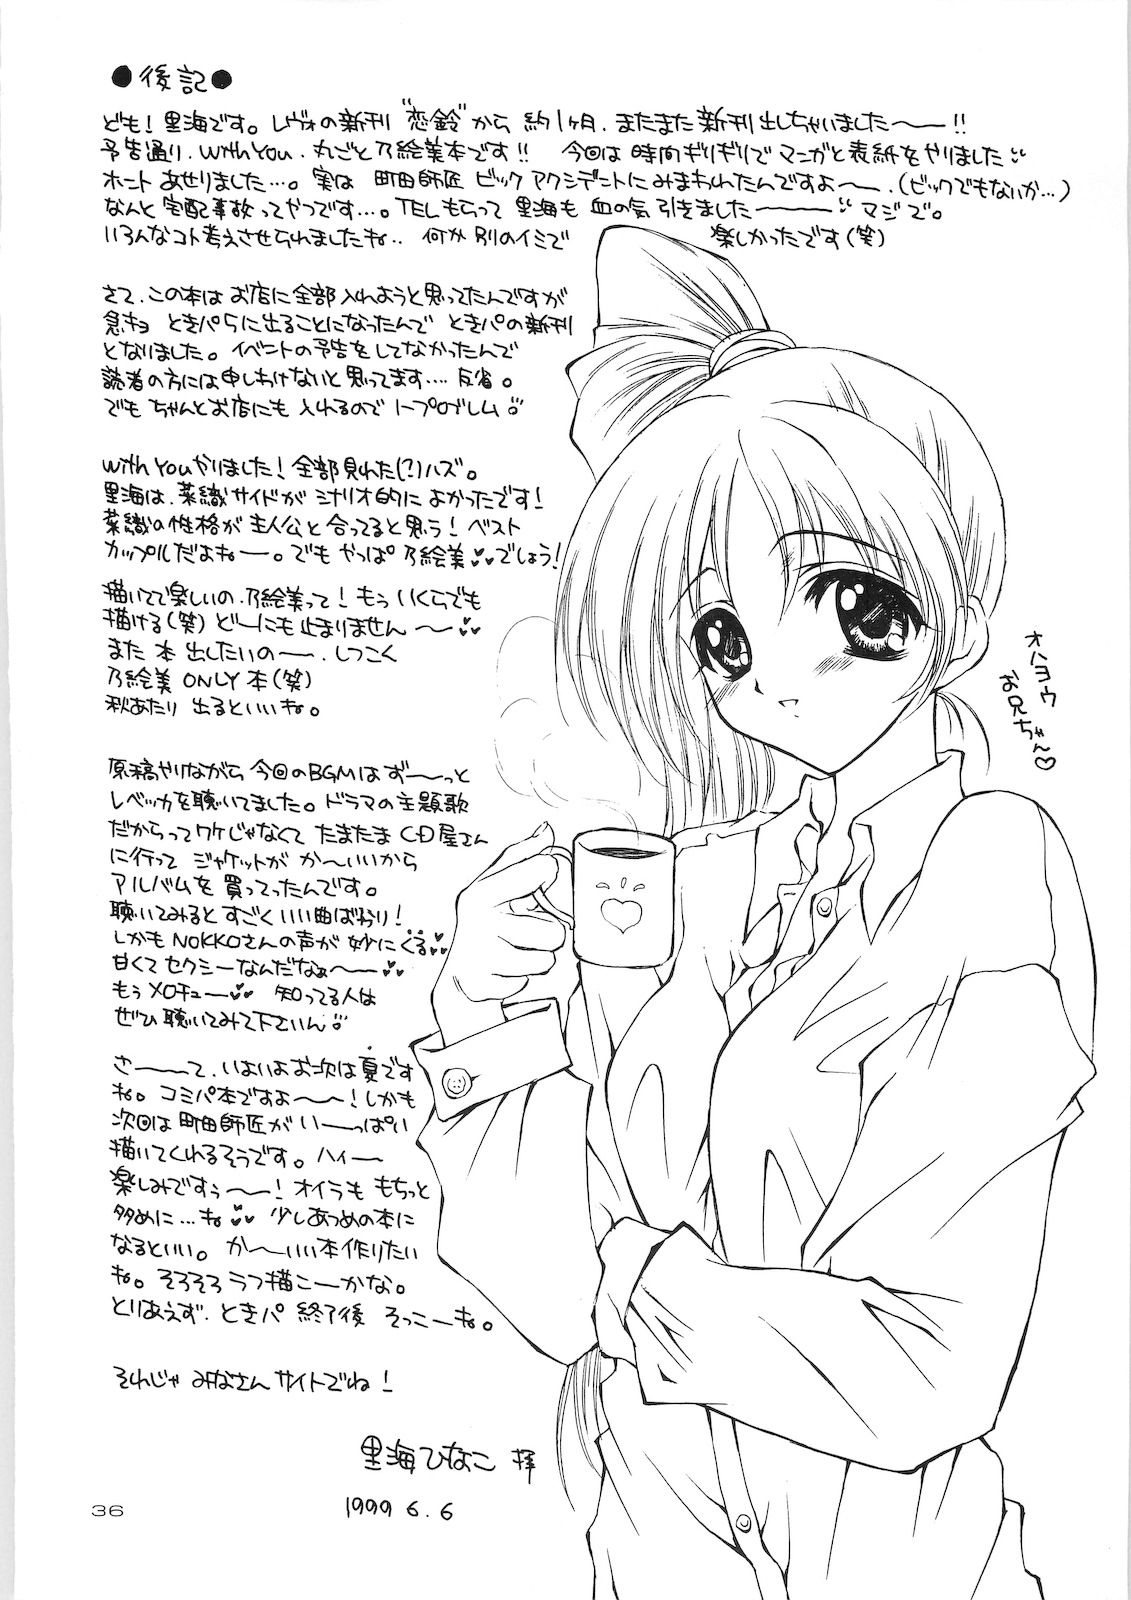 ●後記●
ども！里海です。レヴォの新刊“恋鈴”から約1ヶ月．またまた新刊出しちゃいました〜〜!!
予告通り．With You．丸ごと乃絵美本です!!　今回は時間ギリギリでマンガと表紙をやりました
ホントあせりました…。実は　町田師匠 ビック アクシデントにみまわれたんですよ〜．（ビックでもないか…）
なんと宅配事故ってやつです…。TELもらって里海も血の気引きました〜〜〜 マジで。
いろんなコト考えさせられましたね‥ 何か別のイミで　楽しかったです（笑）
さて．この本はお店に全部入れようと思ってたんですが
急キョ ときパ5に出ることになったんで ときパの新刊
となりました。イベントの予告をしてなかったんで
読者の方には申しわけないと思ってます‥‥反省。
でもちゃんとお店にも入れるので ノープロブレム
With Youやりました！全部見れた（？）ハズ。
里海は．菜織サイドがシナリオ的によかったです！
菜織の性格が主人公と合ってると思う！ベスト
カップルだよねー。でもやっぱ乃絵美♥♥でしょう！
描いてて楽しいの．乃絵美って！もういくらでも
描ける（笑）どーにも止まりません〜♥♥
また本出したいの〜．しつこく
乃絵美ONLY本（笑）
秋あたり出るといいね。
原稿やりながら今回のBGMはず〜〜っと
レベッカを聴いてました。ドラマの主題歌
だからってワケじゃなくて たまたまCD屋さん
に行って ジャケットが か〜いいから
アルバムを買ってったんです。
聴いてみるとすごくいい曲ばかり！
しかもNOKKOさんの声が妙にくる♥♥
甘くてセクシーなんだなぁ〜〜♥♥
もぅメロチュ〜♥♥　知ってる人は
ぜひ聴いてみて下さいん
さ〜〜て．いよいよお次は夏です
ね。コミパ本ですよ〜〜！しかも
次回は町田師匠がい〜っぱい
描いてくれるそうです。ハィ〜
楽しみですぅ〜〜！オイラももちっと
多めに…ね♥♥　少しあつめの本に
なるといい。か〜いい本作りたい
ね。そろそろラフ描こーかな。
とりあえず．ときパ終了後 そっこーね。
それじゃ みなさん サイトでね！
里海ひなこ 拝
1999 6.6
オハヨウ
お兄ちゃん♡
36